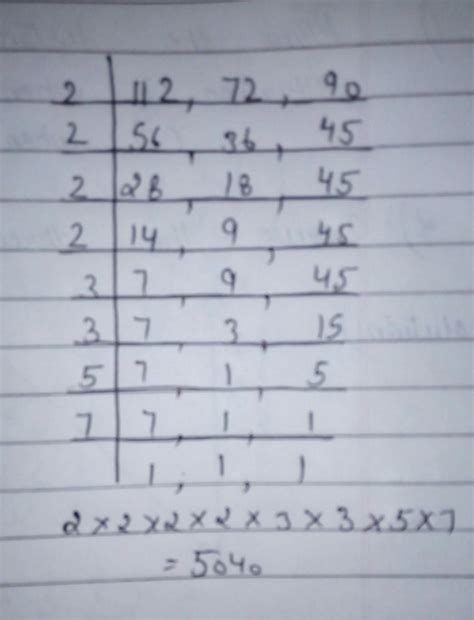 2 | 112, 72, 90
2 | 56, 36, 45
2 | 28, 18, 45
2 | 14, 9, 45
3 | 7, 9, 45
3 | 7, 3, 15
5 | 7, 1, 5
7 | 7, 1, 1
1, 1, 1
2×2×2×2×3×3×5×7
= 5040